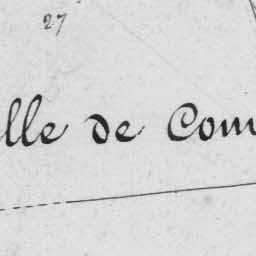 27
lle de Com